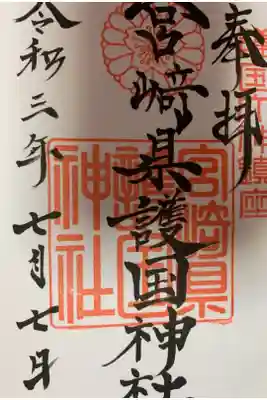 奉拝
宮崎県護国神社
令和三年七月七日
宮崎縣
護國
神社